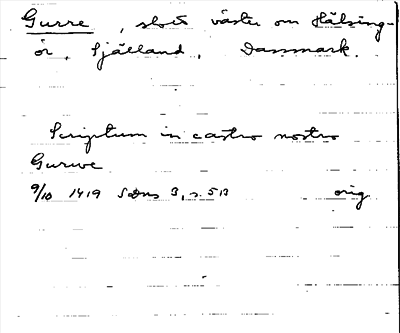 Gurre, slott väster om Hälsing-
ör, Själland, Danmark.
Scriptum in castro nostro
Gurwe
9/10 1419 SDns 3, s. 513 orig